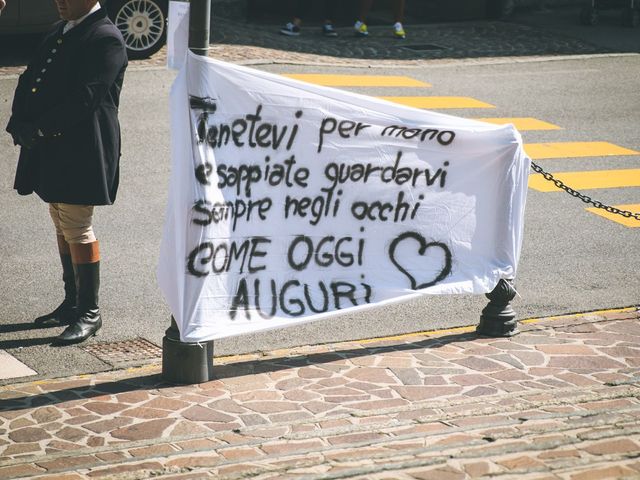 Tenetevi per mano
e sappiate guardarvi
sempre negli occhi
COME OGGI
AUGURi